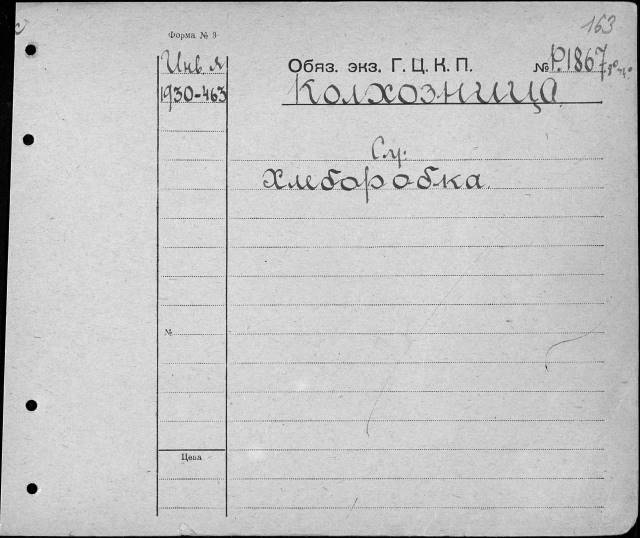 163
Форма № 3
Инв. №
1930-463
Обяз. экз. Г. Ц. К. П.
№ Р.1867
Колхозница.
См.
Хлеборобка.
№
Цена